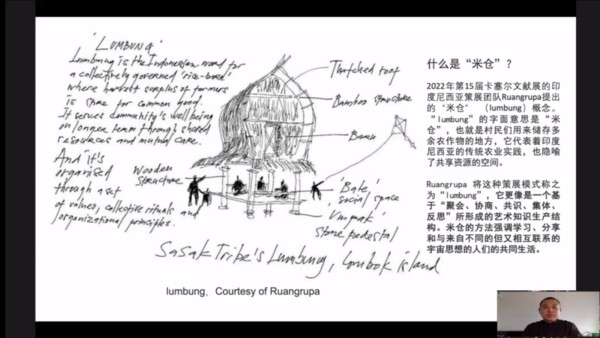 'LUMBUNG'
Lumbung is the Indonesian word for
a collectively governed 'rice-barn'
where harvest surplus of farmers
is store for common good.
It serves community's well being
on longer term through shared
resources and mutual care.
And it's
organised
through a set
of values, collective rituals and
organizational principles.
Thatched roof
Bamboo structure
Barn
Wooden
structure
'Bale',
social space
'Umpak'
Stone pedestal
Sasak Tribe's Lumbung, Lombok island
lumbung, Courtesy of Ruangrupa
什么是“米仓”？
2022年第15届卡塞尔文献展的印
度尼西亚策展团队Ruangrupa提出
的“米仓”（lumbung）概念。
“lumbung”的字面意思是“米
仓”，也就是村民们用来储存多
余农作物的地方，它代表着印度
尼西亚的传统农业实践，也隐喻
了共享资源的空间。
Ruangrupa 将这种策展模式称之
为“lumbung”，它更像是一个基
于“聚会、协商、共识、集体、
反思”所形成的艺术知识生产结
构。米仓的方法强调学习、分享
和与来自不同的但又相互联系的
宇宙思想的人们的共同生活。